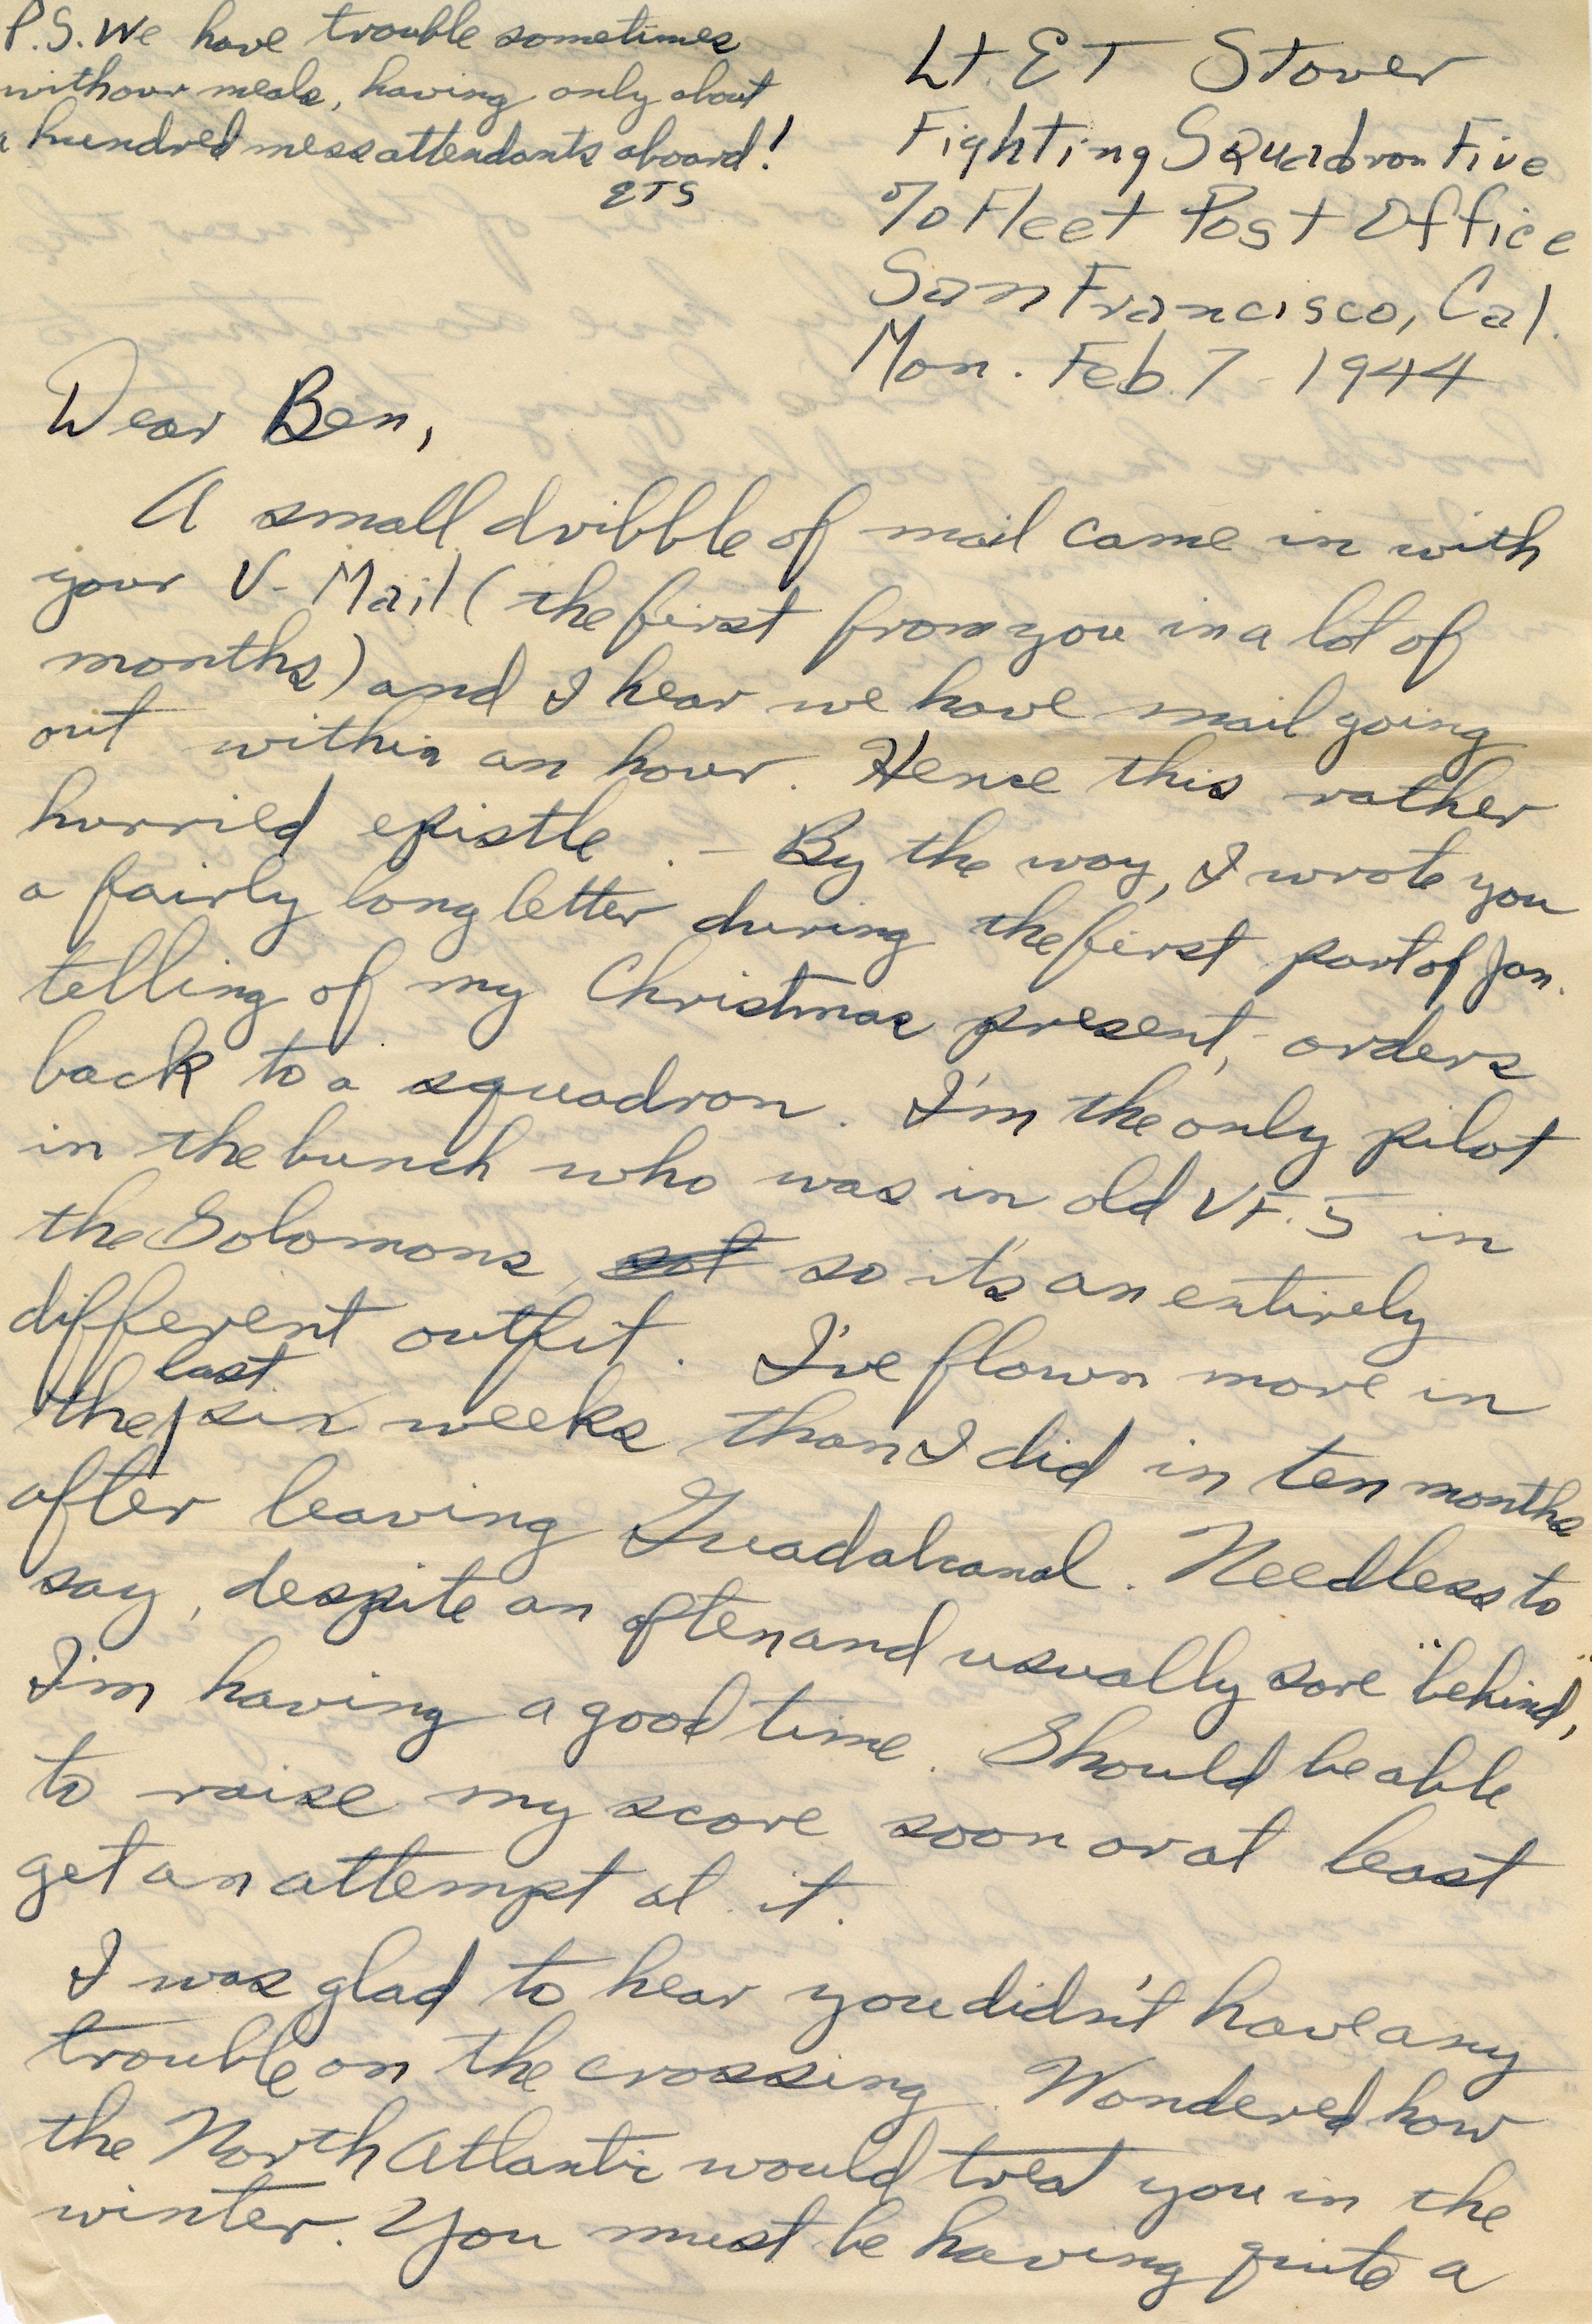 P.S. We have trouble sometimes
with our meals, having only about
a hundred mess attendants aboard!
ETS
Lt. E T Stover
Fighting Squadron Five
℅ Fleet Post Office
San Francisco, Cal.
Mon. Feb. 7 1944
Dear Ben,
A small dribble of mail came in with
your V-Mail (the first from you in a lot of
months) and I hear we have mail going
out within an hour. Hence this rather
hurried epistle. - By the way, I wrote you
a fairly long letter during the first part of Jan.
telling of my Christmas present, - orders
back to a squadron. I'm the only pilot
in the bunch who was in old VF-5 in
the Solomons, so it's an entirely
different outfit. I've flown more in
the last six weeks than I did in ten months
after leaving Guadalcanal. Needless to
say, despite an often and usually sore "behind",
I'm having a good time. Should be able
to raise my score soon or at least
get an attempt at it.
I was glad to hear you didn't have any
trouble on the crossing. Wondered how
the North Atlantic would treat you in the
winter. You must be having quite a